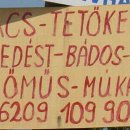 ÁCS-TETŐKE
EDÉST-BÁDOS-
ŐMŰS-MUKÁ
6209 109 90